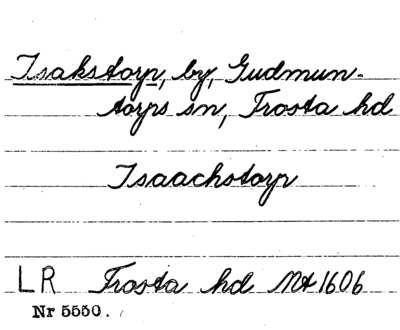 Isakstorp, by, Gudmun-
torps sn, Frosta hd
Isaachstorp
LR Frosta hd Mt 1606
Nr 5550.